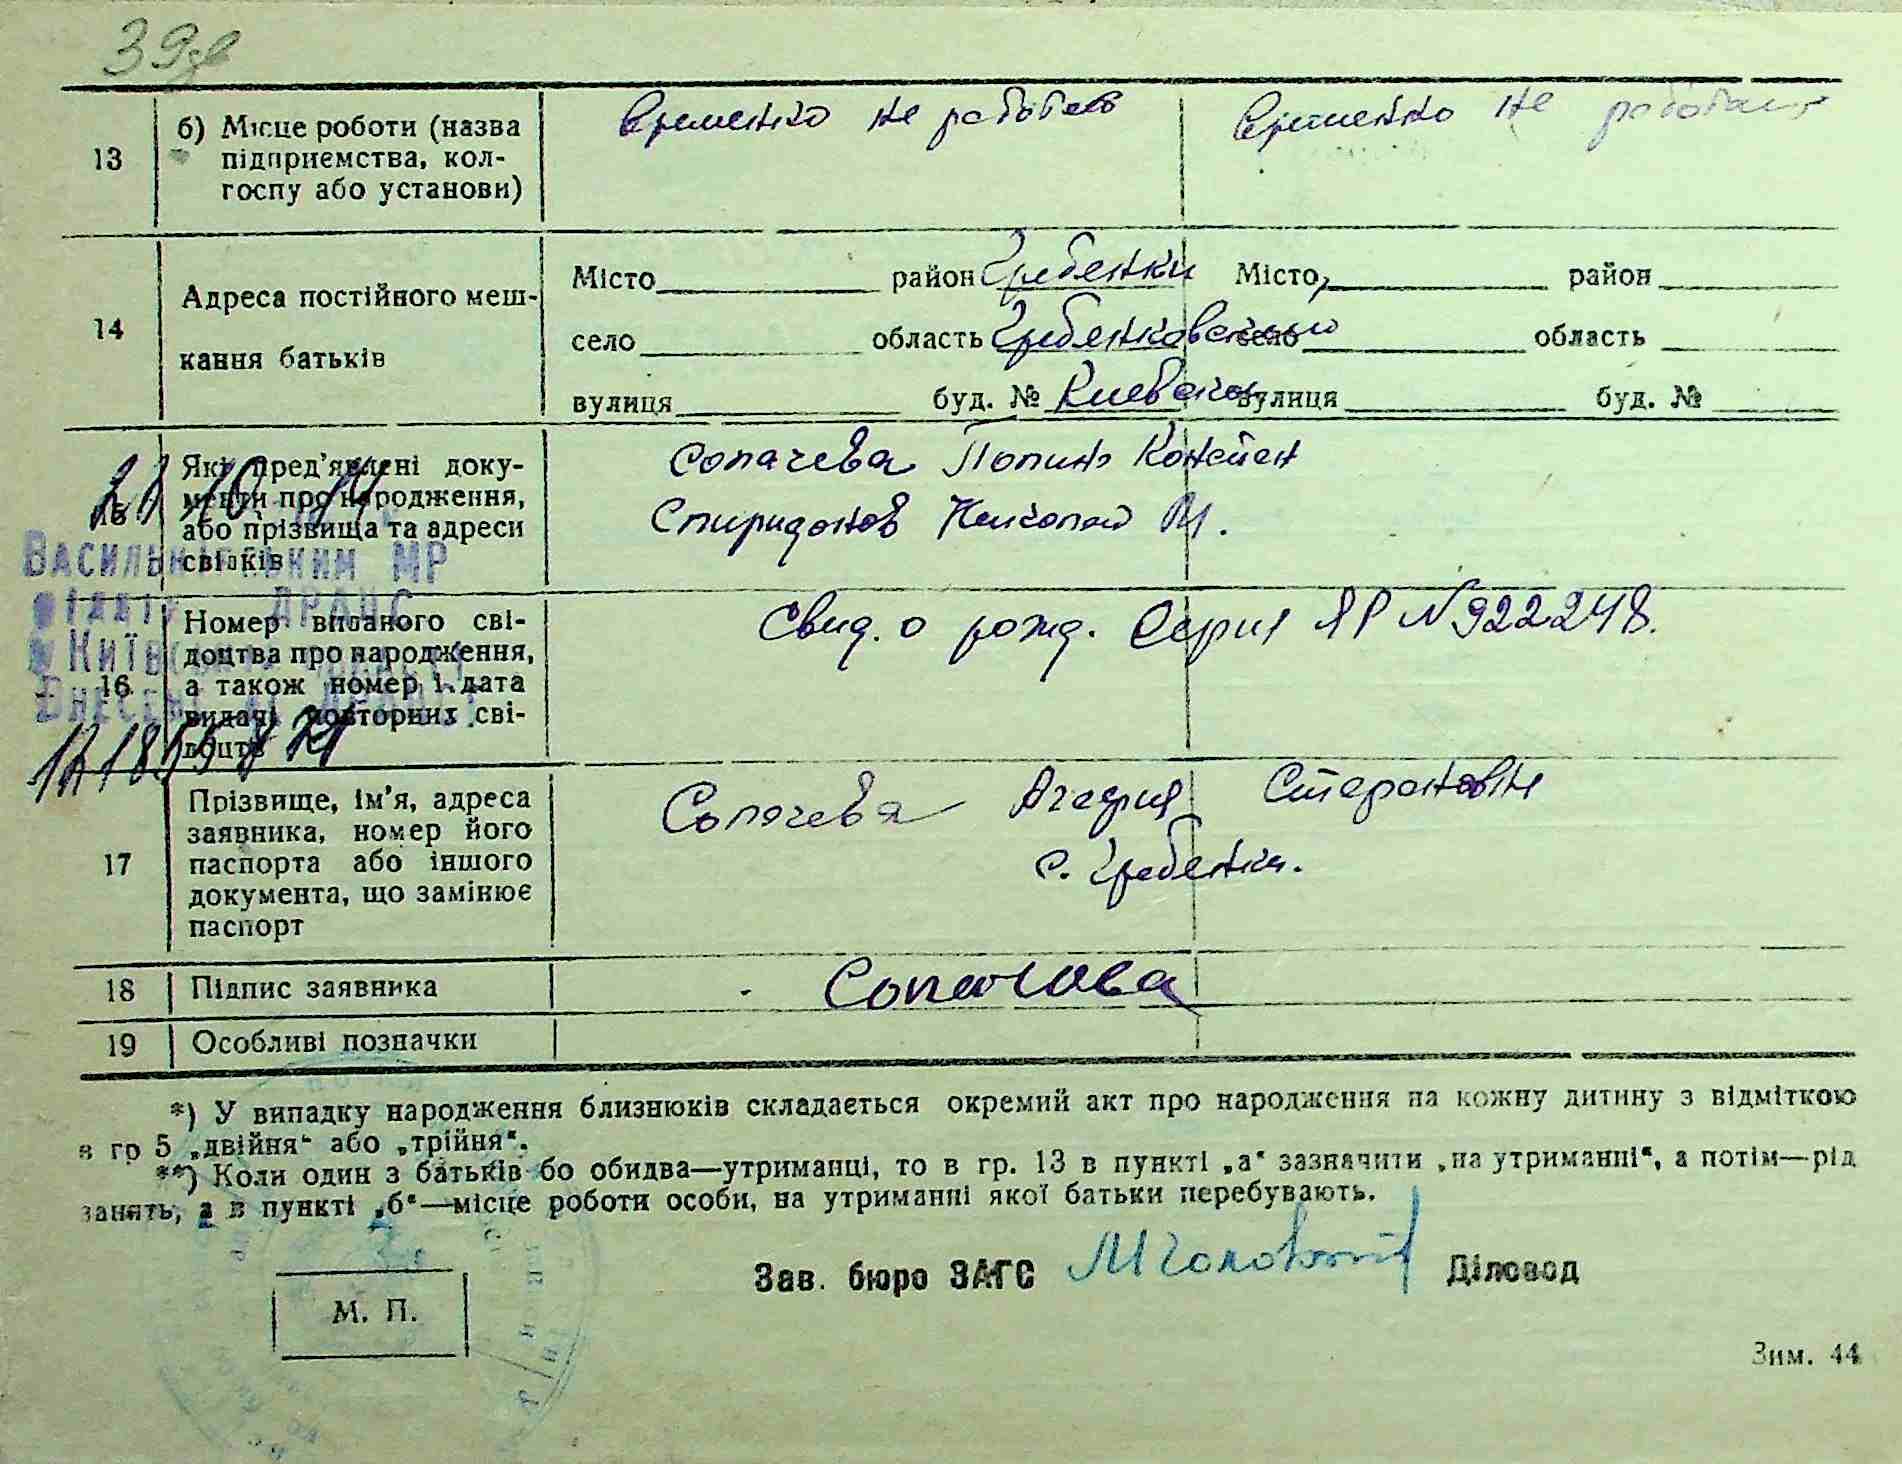 39
13
б) Місце роботи (назва
підприємства, кол-
госпу або установи)
Временно не работает
Временно не работает
14
Адреса постійного меш-
кання батьків
Місто район Гребенки Місто район
село область Гребенковский село область
вулиця буд. № Киевской вулиця буд. №
15
Які пред'явлені доку-
менти про народження,
або прізвища та адреси
свідків
Сопачева
Спиридонов Николай М.
21 10 14
Васильківським МР
Київ
16
Номер виданого сві-
доцтва про народження,
а також номер і дата
видачі повторних сві-
доцтв
Свид. о рожд. Серия ЯР №922248.
17
Прізвище, ім'я, адреса
заявника, номер його
паспорта або іншого
документа, що замінює
паспорт
Сопачева
с. Гребенки.
18 Підпис заявника
Сопачова
19 Особливі позначки
*) У випадку народження близнюків складається окремий акт про народження на кожну дитину з відміткою
в гр 5 „двійня“ або „трійня“.
**) Коли один з батьків бо обидва—утриманці, то в гр. 13 в пункті „а“ зазначити „на утриманні“, а потім—рід
занять, а в пункті „б“—місце роботи особи, на утриманні якої батьки перебувають.
Зав. бюро ЗАГС Діловод
М. П.
Зим. 44